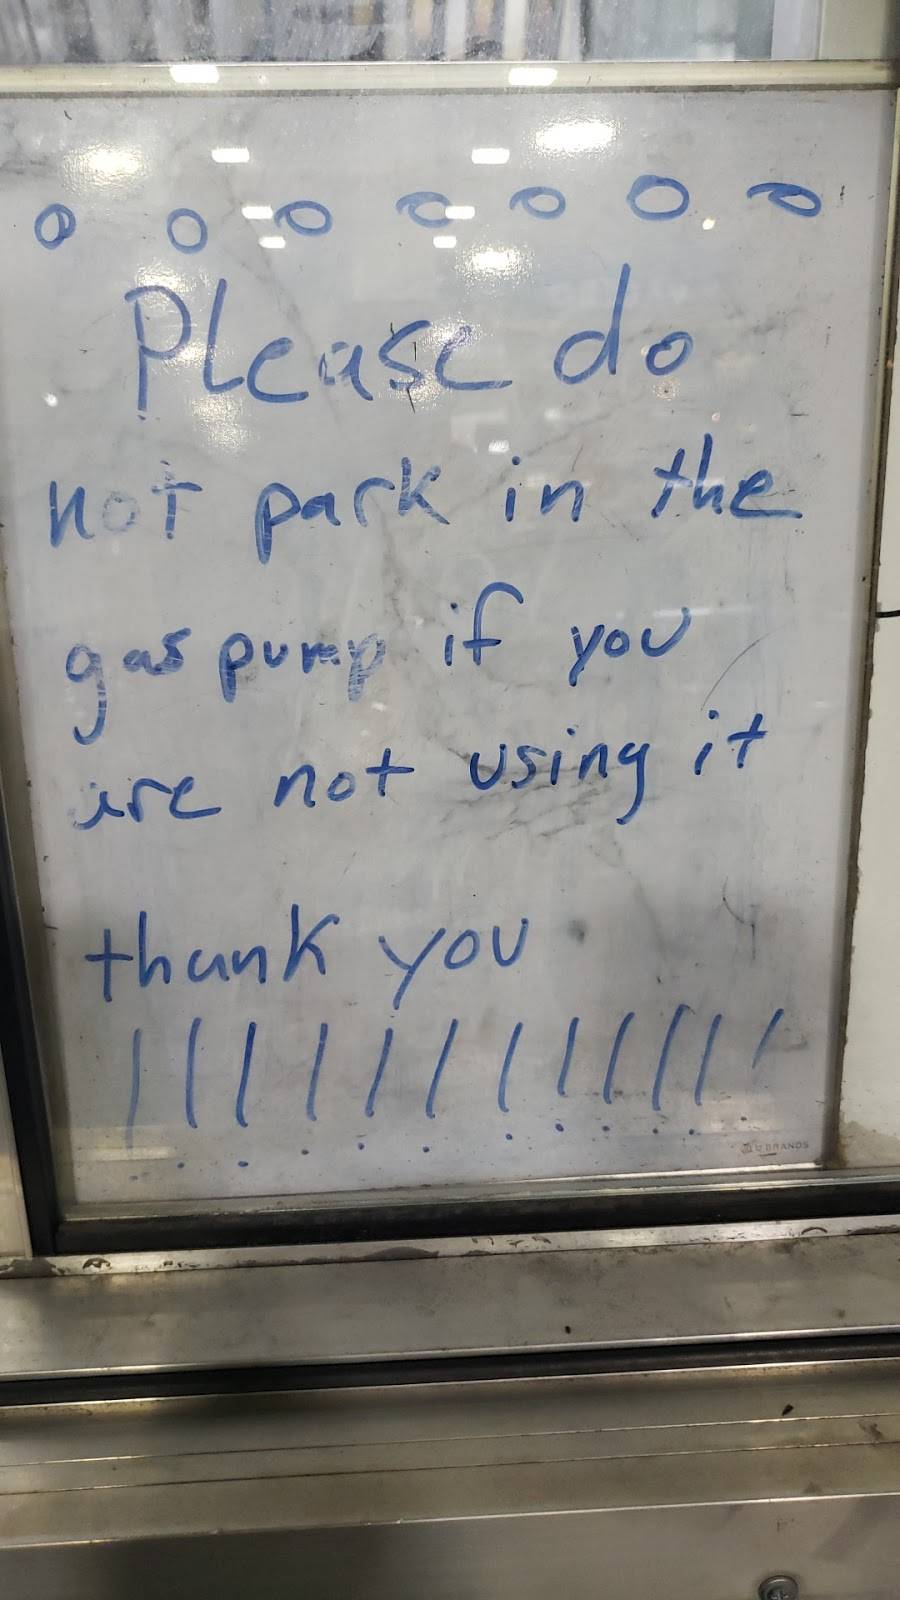 o o o o o o o
Please do
not park in the
gas pump if you
are not using it
thank you
!!!!!!!!!!!!
U BRANDS